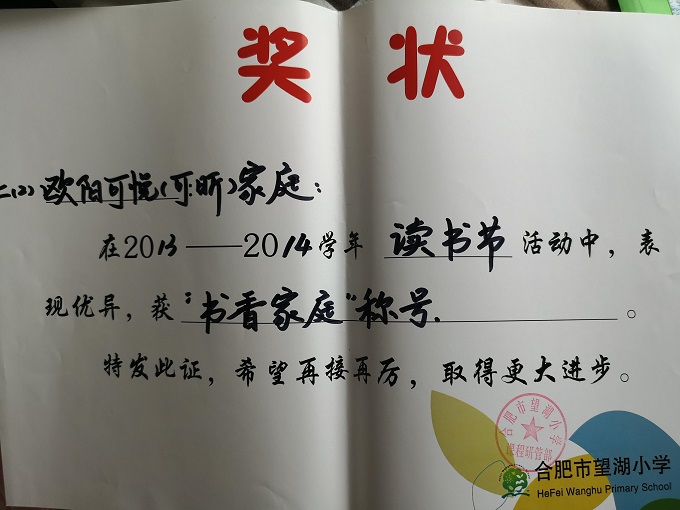 奖状
二(2)欧阳可悦(可昕)家庭:
在2013——2014学年 读书节 活动中，表
现优异，获"书香家庭"称号.。
特发此证，希望再接再厉，取得更大进步。
合肥市望湖小学
课程研管部
合肥市望湖小学
HeFei Wanghu Primary School